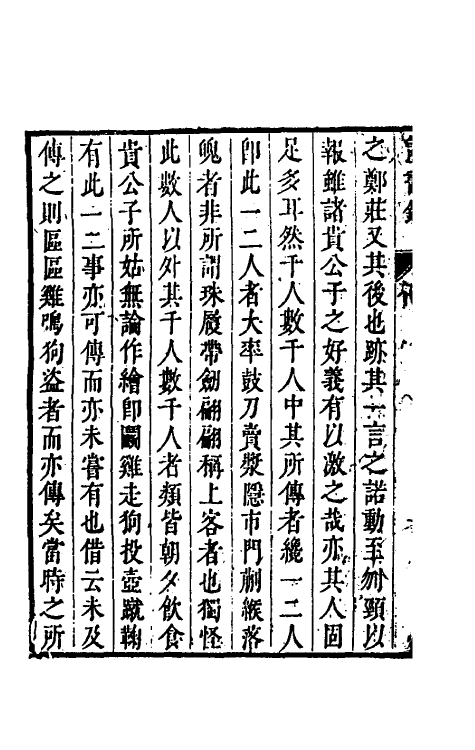 之鄭莊又其後也跡其一言之諾動至刎頸以
報雖諸貴公子之好義有以激之哉亦其人固
足多耳然千人數千人中其所傳者纔一二人
卽此一二人者大率鼓刀賣漿隱市門蒯緱落
魄者非所謂珠履帶劍翩翩稱上客者也獨怪
此數人以外其千人數千人者類皆朝夕飲食
貴公子所姑無論作繪卽鬬雞走狗投壺蹴鞠
有此一二事亦可傳而亦未嘗有也借云未及
傳之則區區雞鳴狗盜者而亦傳矣當時之所